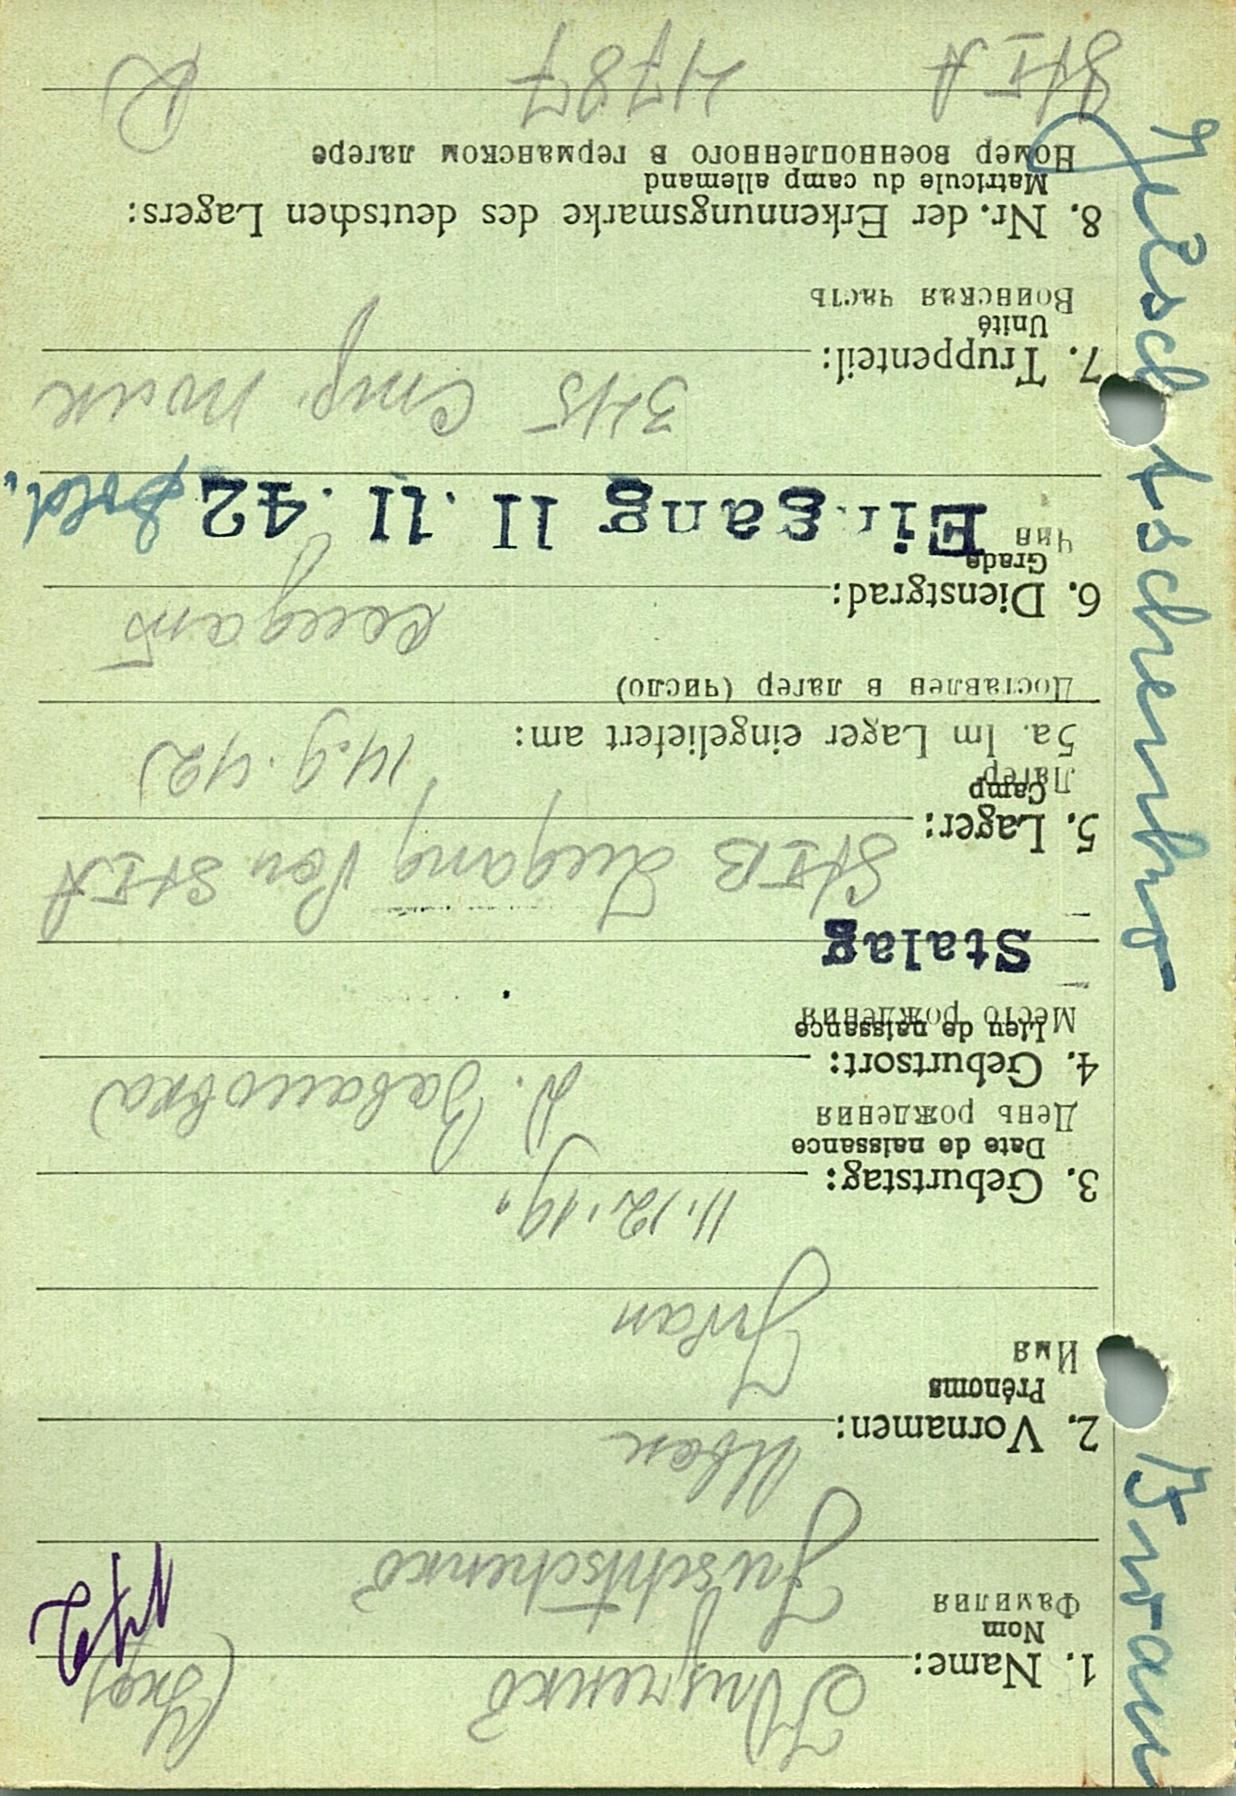 Iwan
1. Name:
Nom
Фамилия
Juschtschenko
2. Vornamen:
Prénoms
Имя
Иван
Iwan
3. Geburtstag: 11.12.19.
Date de naissance
День рождения
4. Geburtsort:
Lieu de naissance
Место рождения
Stalag
5. Lager: St I B Zugang von St I A
Camp
Лагерь
5a. Im Lager eingeliefert am: 14.9.42
Доставлен в лагерь (число)
6. Dienstgrad: солдат
Grade
Чин
Eingang 11.11.42 Sold.
7. Truppenteil: 345
Unité
Воинская часть
8. Nr. der Erkennungsmarke des deutschen Lagers:
Matricule du camp allemand
Номер военнопленного в германском лагере
St I A 4787